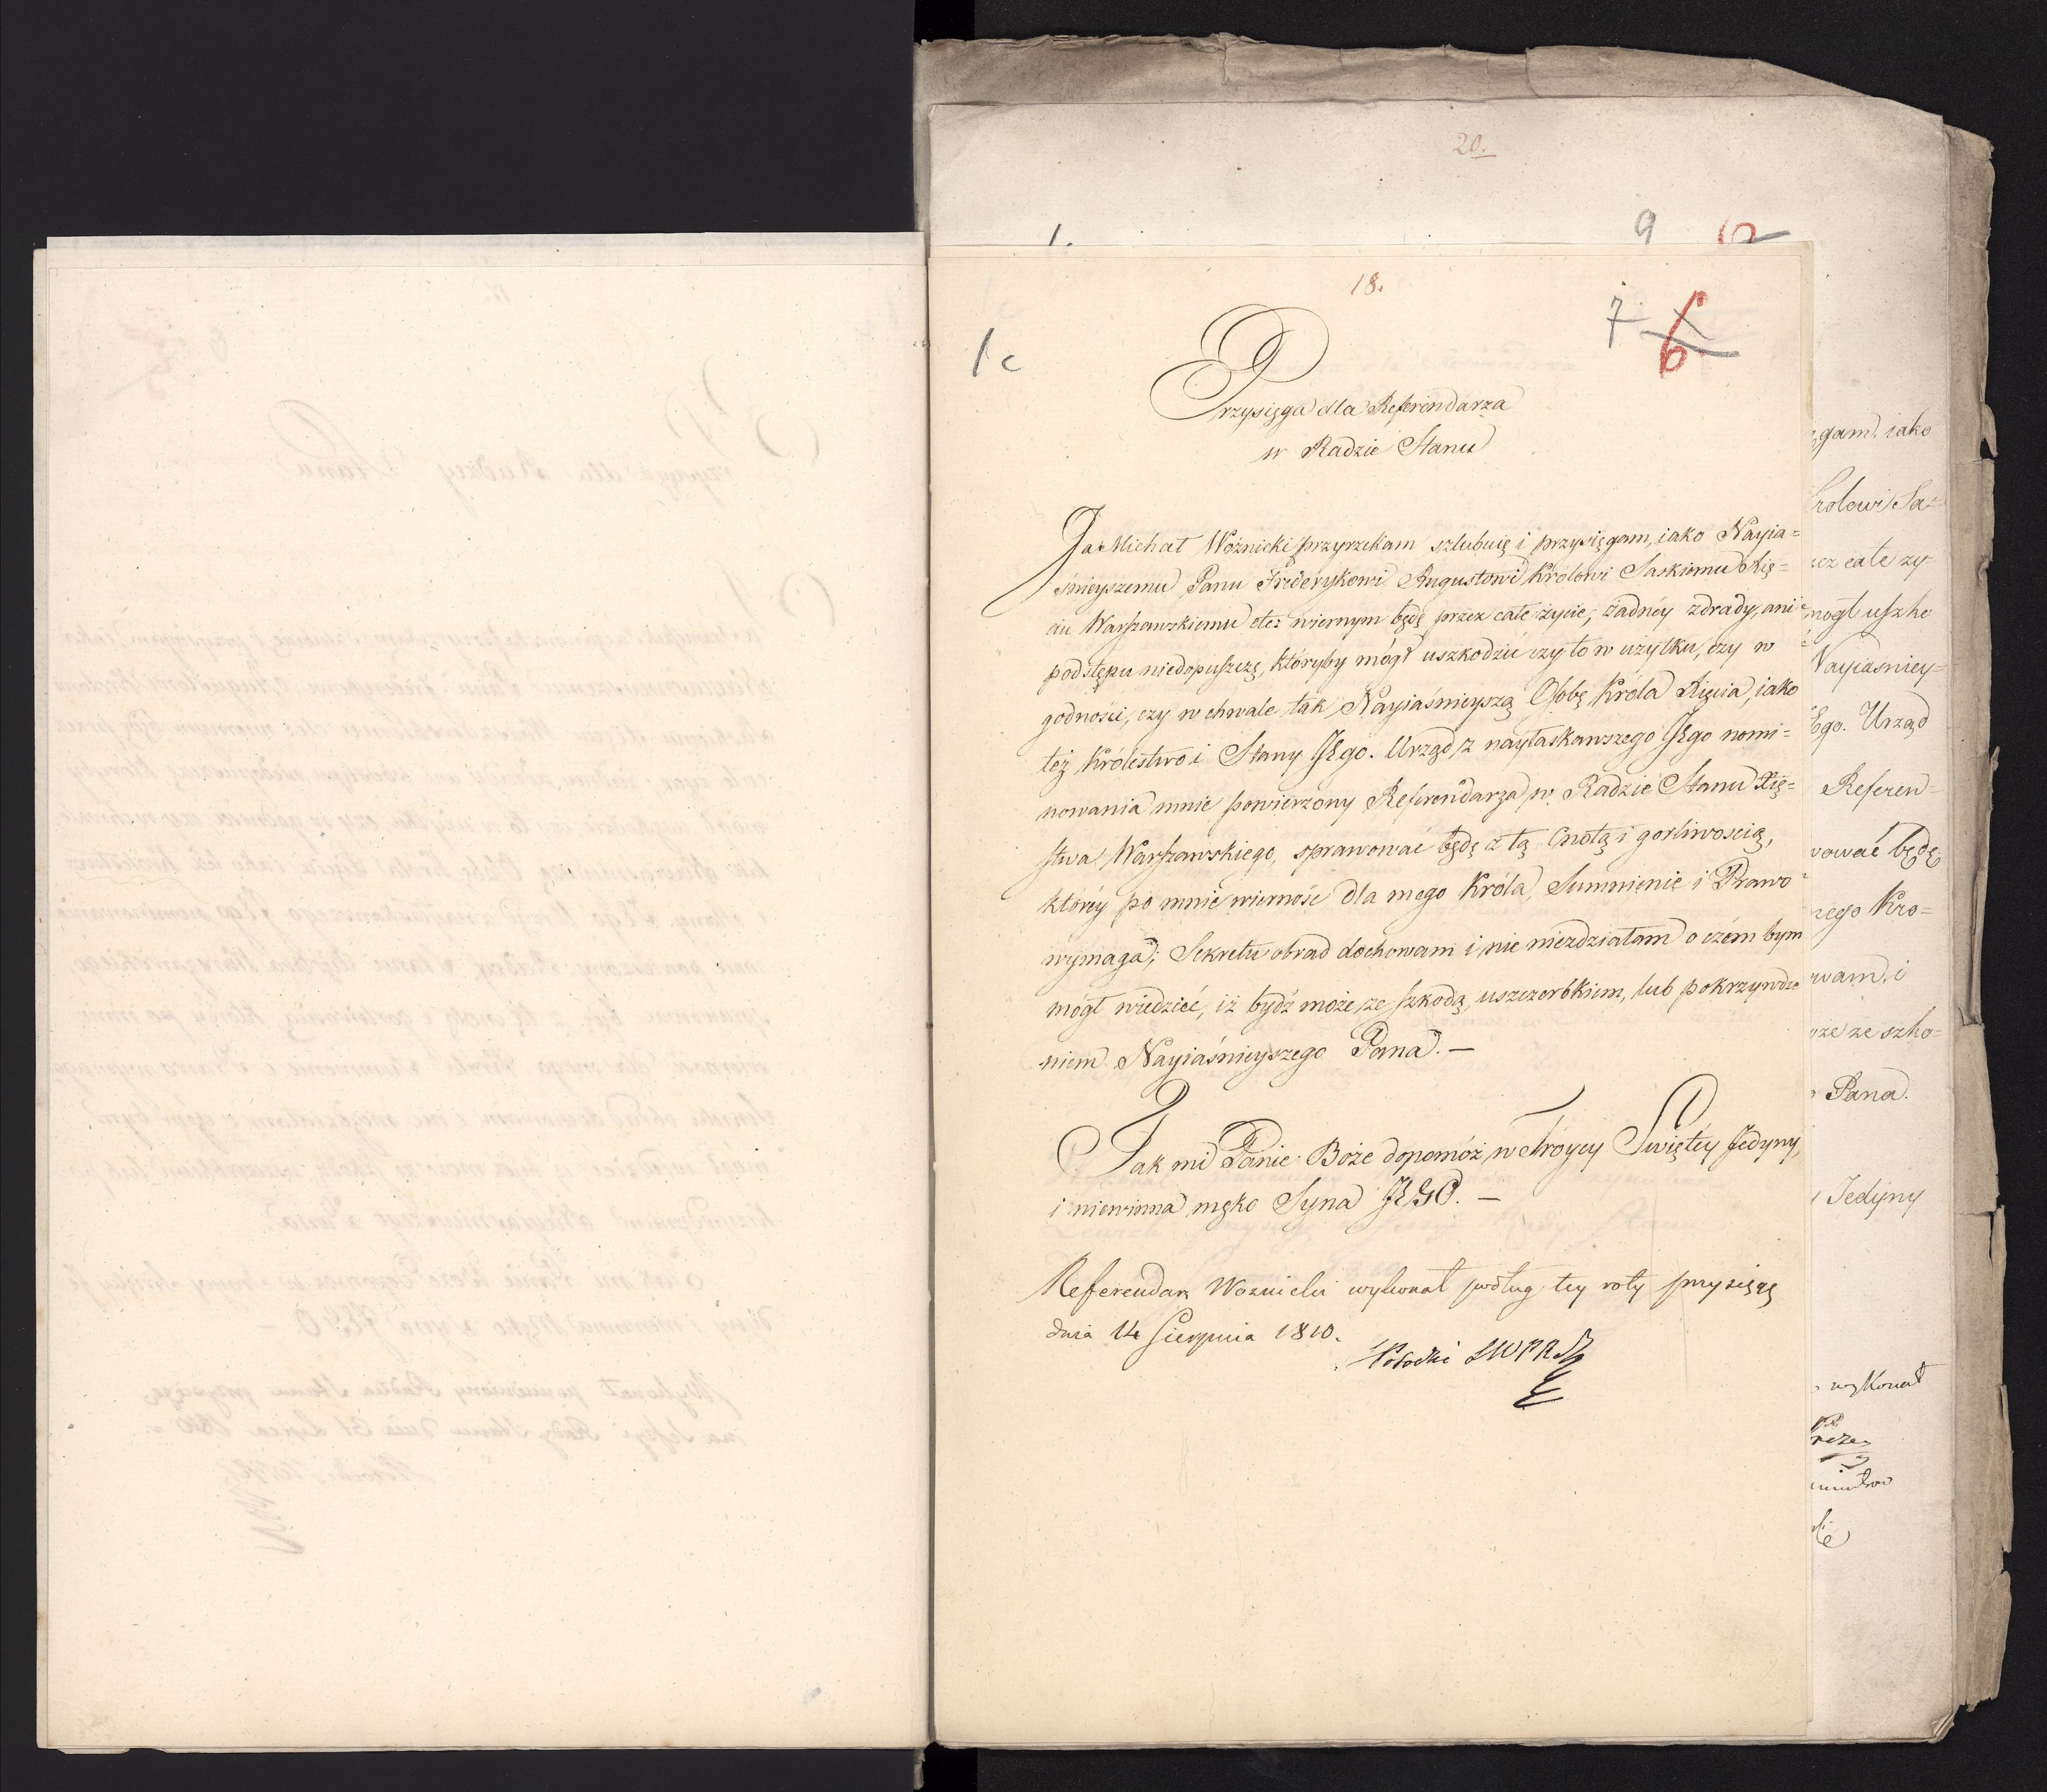 20.
1.
9
12
18.
7.
6
1c
Przysięga dla Referendarza
w Radzie Stanu
Ja Michał Woźnicki przyrzekam szlubuię i przysięgam, iako Nayia=
śnieyszemu Panu Friderykowi Augustowi Królowi Saskiemu Xię=
ciu Warszawskiemu etc: wiernym będę przez całe życie, żadnéy zdrady, ani
podstępu niedopuszczę, któryby mógł uszkodzić czy to w użytku, czy w
godności, czy w chwale tak Nayiaśnieyszą Osobę Króla Xięcia, iako
też Królestwo i Stany JEgo. Urząd z nayłaskawszego JEgo nomi=
nowania mnie powierzony Referendarza w Radzie Stanu Xię=
stwa Warszawskiego, sprawować będę z tą Cnotą i gorliwością,
któréy po mnie wierność dla mego Króla, Sumnienie i Prawo
wymaga; Sekretu obrad dochowam i nic niezdziałam o czém bym
mógł wiedzieć, iż bydź może ze szkodą, uszczerbkiem, lub pokrzywdze
niem Nayiaśnieyszego Pana. —
Tak mi Panie Boże dopomóż w Tróycy Swiętey Jedyny,
i niewinna męko Syna JEGO. —
Referendarz Woznicki wykonał podług tey roty przysięgę
dnia 14 Sierpnia 1810.
Potocki
gam, iako
rolowi Sa=
całe ży=
mógł uszko
Nayiaśniey=
Ego. Urząd
Referen=
wować będę
mego Kró=
wam, i
ze szko=
Pana.
Jedyny
wykonał